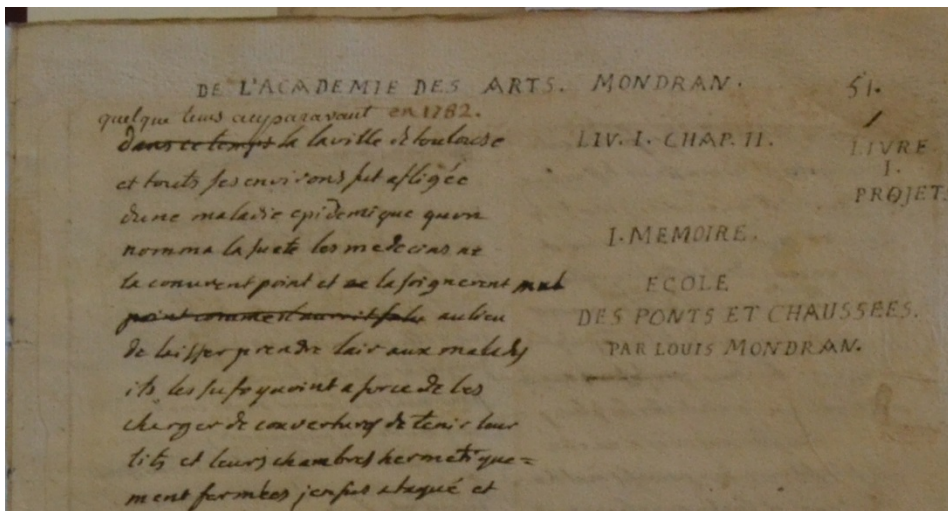 DE L'ACADEMIE DES ARTS. MONDRAN. 51.
quelque tems auparavant en 1782.
dans ce temps la la ville de toulouse
et touts ses environs fut afligée
dune maladie epidemique quon
nomma la suete les medecins ne
la conurent point et ne la soignerent mal
point comme il auroit falu au lieu
de laisser prendre lair aux malades
ils les sufoquoint a force de les
charger de couvertures de tenir leur
lits et leurs chambres hermetique=
ment fermées jen fus ataqué et
LIV. I. CHAP. II.
I. MEMOIRE.
ECOLE
DES PONTS ET CHAUSSEES.
PAR LOUIS MONDRAN.
LIVRE
I.
PROJET.